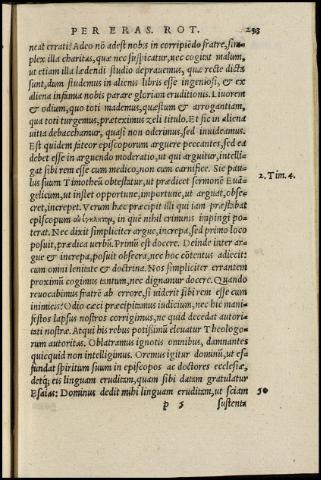 PER ERAS. ROT. 293
neat errati? Adeo nō adest nobis in corripiēdo fratre, sim-
plex illa charitas, quæ nec suspicatur, nec cogitat malum,
ut etiam illa lædendi studio deprauemus, quæ recte dicta
sunt, dum studemus in alienis libris esse ingeniosi, & ex
aliena infamia nobis parare gloriam eruditionis. Liuorem
& odium, quo toti mademus, quæstum & arrogantiam,
qua toti turgemus, prætexímus zeli titulo. Et sic in aliena
uitia debacchamur, quasi non oderimus, sed inuideamus.
Est quidem fateor episcoporum arguere peccantes, sed ea
debet esse in arguendo moderatio, ut qui arguitur, intelli-
gat sibi rem esse cum medico, non cum carnifice. Sic Pau-
lus suum Timotheū obtestatur, ut prædicet sermonē Euā- 2. Tim. 4.
gelicum, ut instet opportune, importune, ut arguat, obse-
cret, increpet. Verum hæc præcipit illi qui iam præstabat
episcopum in quē nihil criminis inpingi po-
terat. Nec dixit simpliciter argue, increpa, sed primo loco
posuit, prædica uerbū. Primū est docere. Deinde inter ar-
gue & increpa, posuit obsecra, nec hoc cōtentus adiecit:
cum omni lenitate & doctrina. Nos simpliciter errantem
proximū cogimus tantum, nec dignamur docere. Quando
reuocabimus fratrē ab errore, si uiderit sibi rem esse cum
inimicis? Odio cæci præcipitamus iudicium, nec hic mani-
festos lapsus nostros corrigimus, ne quid decedat autori-
tati nostræ. Atqui his rebus potißimū eleuatur Theologo-
rum autoritas. Oblatramus ignotis omnibus, damnantes
quicquid non intelligimus. Oremus igitur dominū, ut ef-
fundat spiritum suum in episcopos ac doctores ecclesiæ,
detq; eis linguam eruditam, quam sibi datam gratulatur
Esaias: Dominus dedit mihi linguam eruditam, ut sciam 50
p 5 sustenta